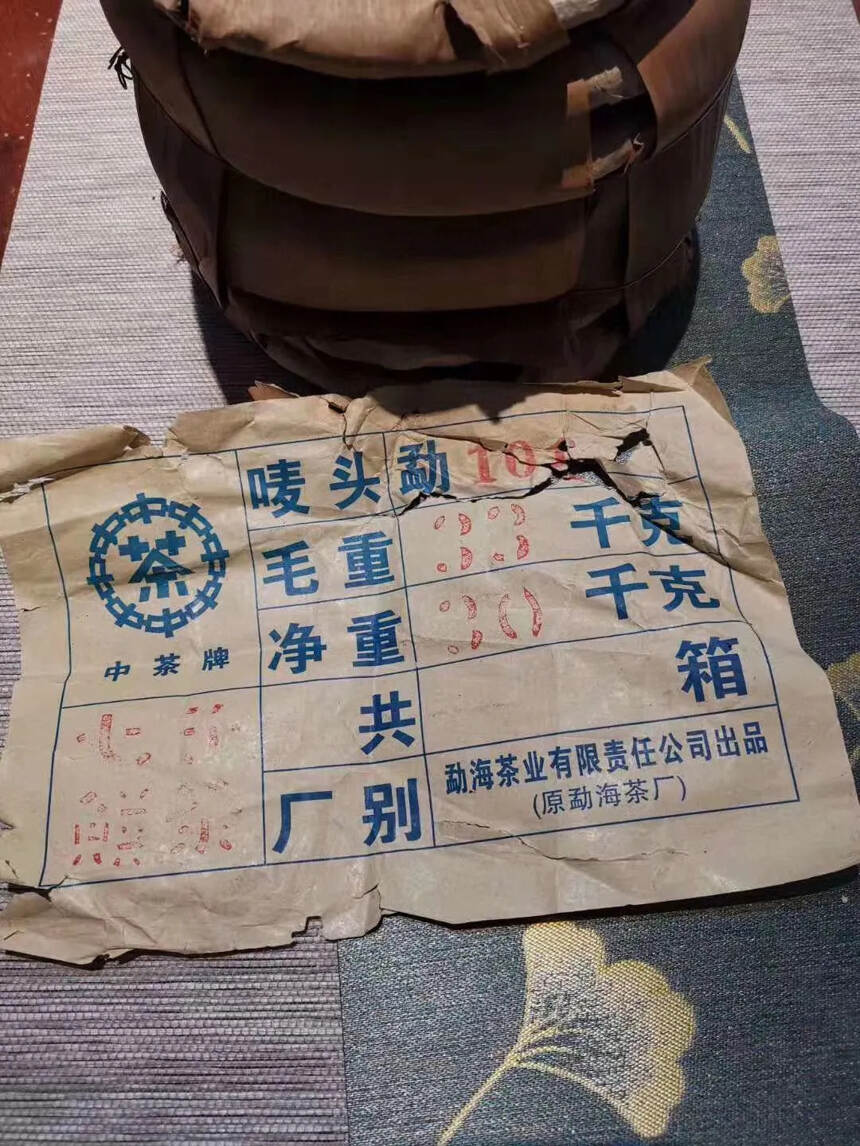 唛头 勐 10
毛重 33 千克
净重 30 千克
茶
中茶牌
共 箱
七子
熟茶
厂别 勐海茶业有限责任公司出品
(原勐海茶厂)